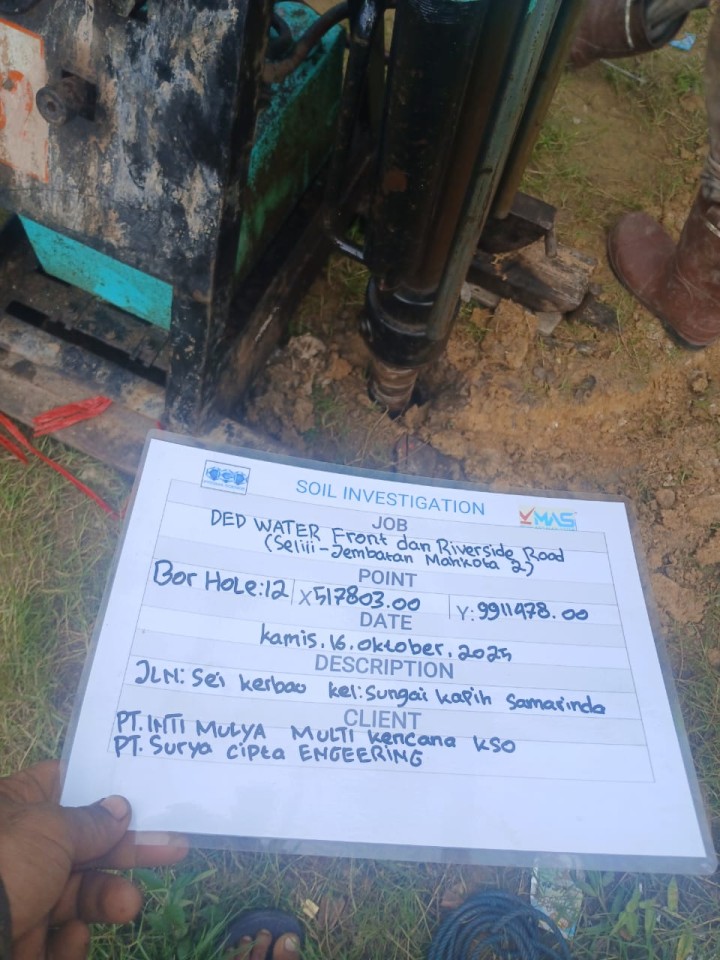 SOIL INVESTIGATION
MAS
JOB
DED WATER Front dan Riverside Road
(Selili-Jembatan Mahkota 2)
POINT
Bor Hole:12 X 517803.00 Y: 9911478.00
DATE
kamis, 16. oktober. 2025
DESCRIPTION
JLN: Sei kerbau kel: Sungai kapih Samarinda
CLIENT
PT. INTI MULYA MULTI kencana KSO
PT. Surya cipta ENGEERING